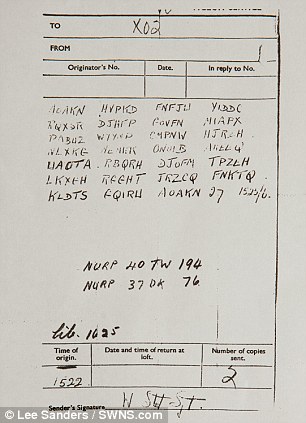 TO X02
FROM
Originator's No. Date. In reply to No.
AOAKN HVPKD FNFJU YIDDC
RQXSR DJHFP GOVFN MIAPX
PABUZ WYYNP CMPNW HJRZH
NLXKG MEMKK ONOIB AKEEQ
UAOTA RBQRH DJOFM TPZEH
LKXGH RGGHT JRZCQ FNKTQ
KLDTS GQIRU AOAKN 27 1525/6.
NURP 40 TW 194
NURP 37 DK 76
lib. 1625
Time of origin. Date and time of return at loft. Number of copies sent.
1522 2
Sender's Signature W Sjt.
© Lee Sanders / SWNS.com